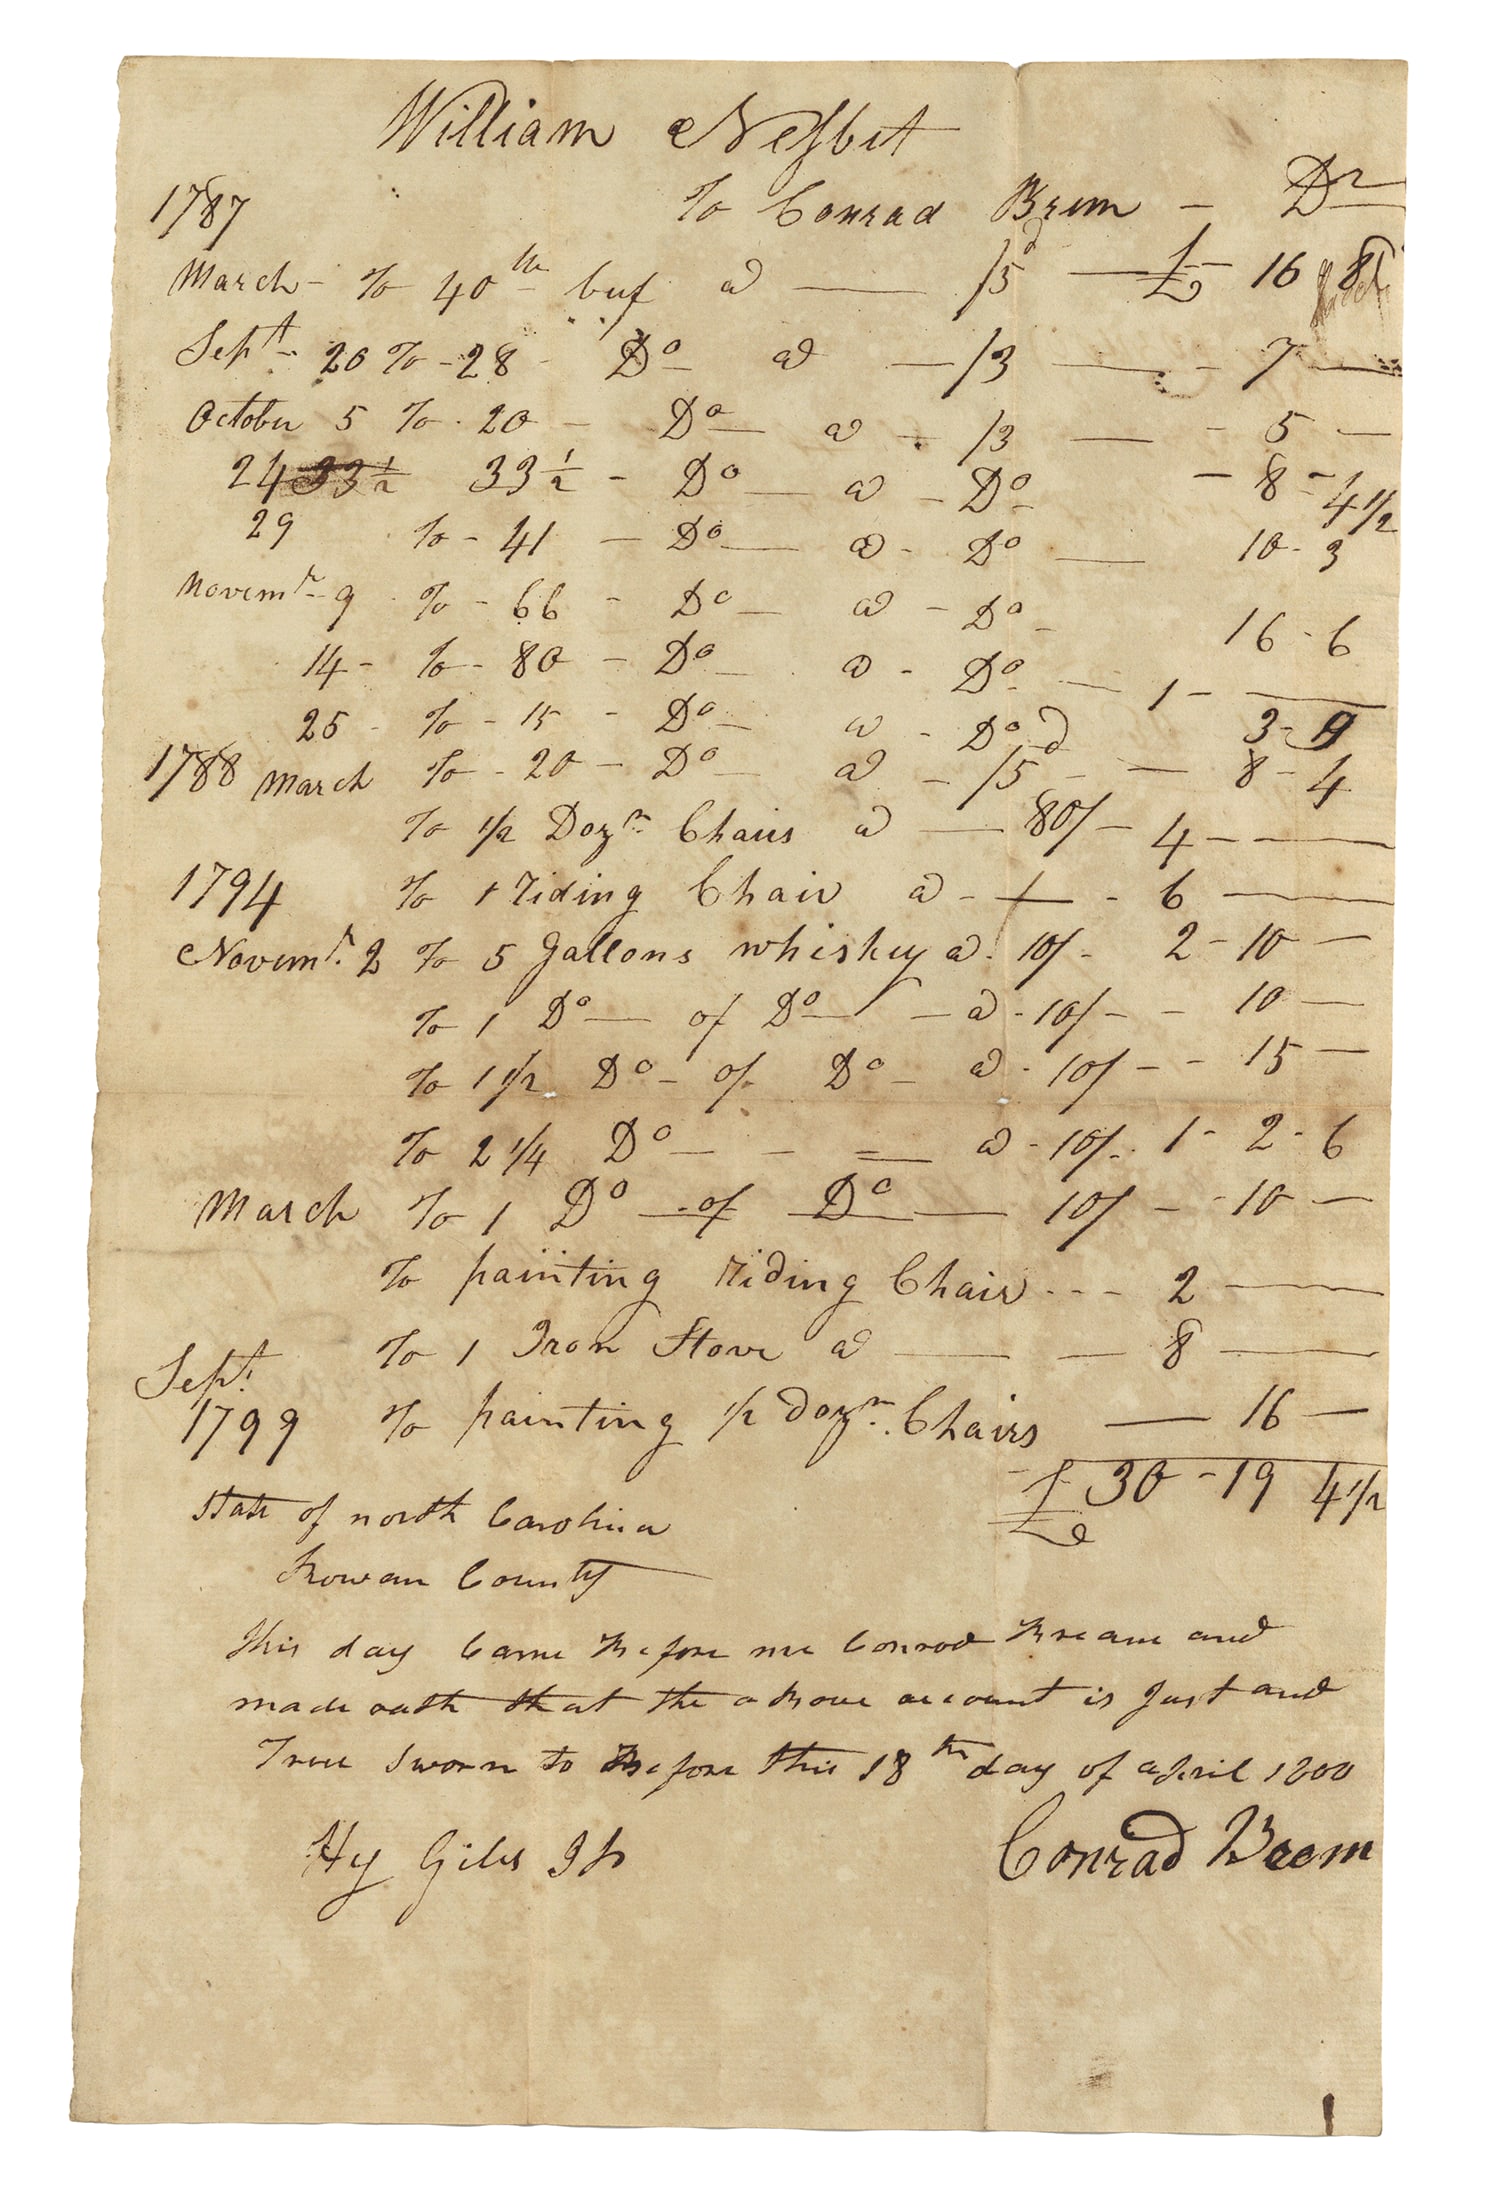 William Nesbit
1787 To Conrad Brem - Dr
March - To 40 lb buf @ — /5d — £ - 16 8
Sept - 20 To - 28 - Do @ — /3 — - 7 —
October 5 To - 20 - Do — @ - /3 — - 5 —
24 33 1/2 33 1/2 - Do — @ - Do - 8 - 4 1/2
29 To - 41 - Do — @ - Do — 10 - 3
Novemr - 9 To - 66 - Do — @ - Do - 16 - 6
14 - To - 80 - Do @ - Do - — 1 - —
25 - To - 15 - Do — @ - Do 3 - 9
1788 March To - 20 - Do — @ - /5d - — 8 - 4
To 1/2 Dozn Chairs @ — 80/ - 4 - —
1794 To 1 riding Chair @ - — - 6 —
Novemr 2 To 5 gallons whiskey @ 10/ - 2 - 10 —
To 1 Do — of Do — @ - 10/ - - 10 —
To 1 1/2 Do - of Do - @ - 10/ - - 15 —
To 2 1/4 Do — - = @ - 10/ - 1 - 2 - 6
March To 1 Do — of Do — 10/ - - 10 —
To painting riding Chair - - - 2 —
To 1 Iron Stove @ — — 8 —
Sept
1799 To painting 1/2 dozn Chairs — 16 —
£ 30 - 19 4 1/2
State of north Carolina
Rowan County
This day Came Before me Conrod Breame and
made oath that the above account is Just and
True Sworn to Before this 18th day of april 1800
Hy Giles Jp Conrad Breem